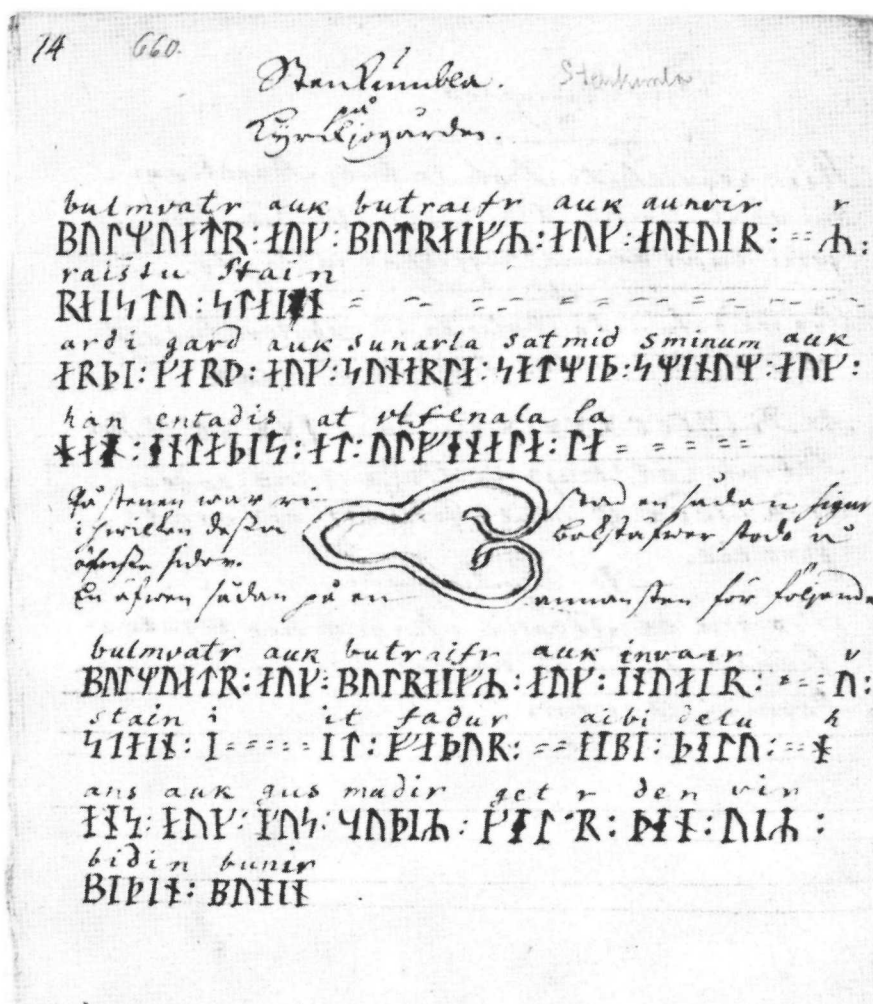 14 660.
Stenkumbla. Stenkumla
på
Kyrkjogården.
bulmvatr auk butraifr auk aunvir r
ᛒᚢᛚᛘᚢᛅᛏᚱ:ᛅᚢᚴ:ᛒᚢᛏᚱᛅᛁᚠᛦ:ᛅᚢᚴ:ᛅᚢᚾᚢᛁᚱ:--ᛦ:
raistu stain
ᚱᛅᛁᛋᛏᚢ:ᛋᛏᛅᛁᚾ
ardi gard auk sunarla satmid sminum auk
ᛅᚱᚦᛁ:ᚠᛅᚱᚦ:ᛅᚢᚴ:ᛋᚢᚾᛅᚱᛚᛅ:ᛋᛅᛏᛘᛁᚦ:ᛋᛘᛁᚾᚢᛘ:ᛅᚢᚴ:
han entadis at vlfenala la
ᚼᛅᚾ:ᛁᚾᛏᛅᚦᛁᛋ:ᛅᛏ:ᚢᛚᚠᛁᚾᛅᛚᛅ:ᛚᛅ
På stenen war ri stad en sådan figur
i hwilken desse bokstafwer stodo
sidor.
En äfwen sådan på en annan sten för följande
bulmvatr auk butraifr auk invair v
ᛒᚢᛚᛘᚢᛅᛏᚱ:ᛅᚢᚴ:ᛒᚢᛏᚱᛅᛁᚠᛦ:ᛅᚢᚴ:ᛁᚾᚢᛅᛁᚱ:---ᚢ:
stain i it fadur aibi delu h
ᛋᛏᛅᛁᚾ:ᛁ-----ᛁᛏ:ᚠᛅᚦᚢᚱ:--ᛅᛁᛒᛁ:ᚦᛁᛚᚢ:--ᚼ
ans auk gus mudir get r den vir
ᛅᚾᛋ:ᛅᚢᚴ:ᚴᚢᛋ:ᛘᚢᚦᛁᛦ:ᚠᛁᛏ-ᚱ:ᚦᛁᚾ:ᚢᛁᛦ:
bidin bunir
ᛒᛁᚦᛁᚾ:ᛒᚢᚾᛁᚾ